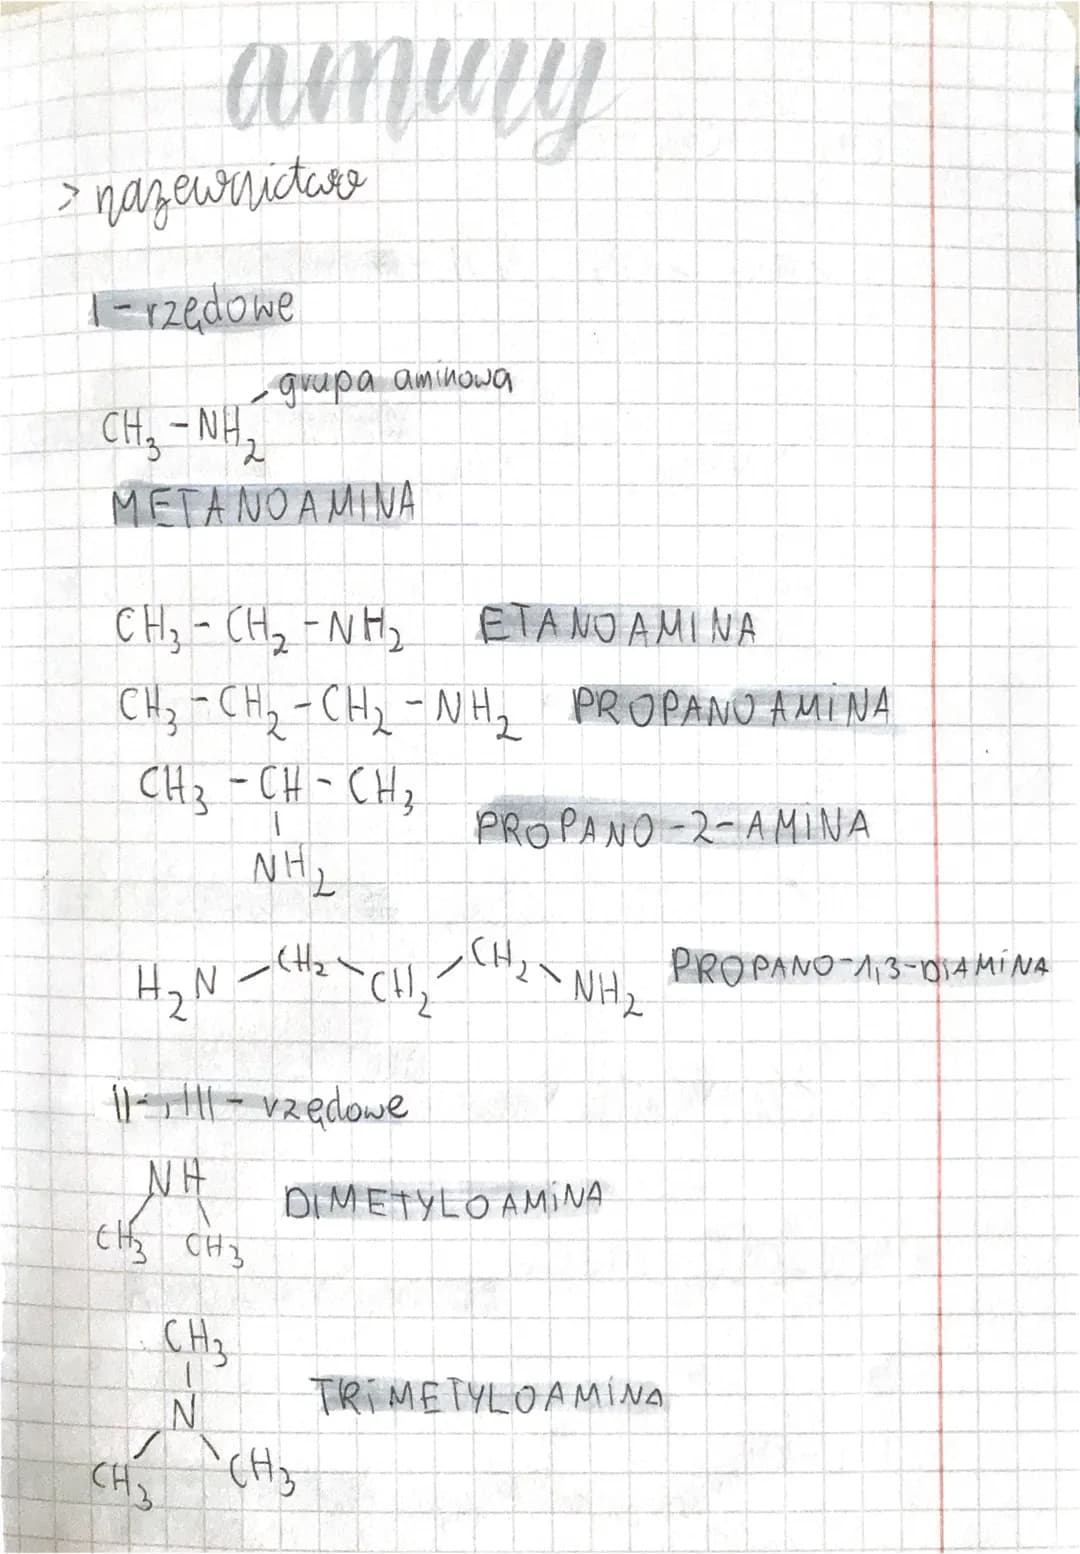 aminy
> nazewnictwo
I-rzędowe
grupa aminowa
CH₃-NH₂
METANOAMINA
CH₃-CH₂-NH₂ ETANOAMINA
CH₃-CH₂-CH₂-NH₂ PROPANOAMINA
CH₃-CH-CH₃
PROPANO-2-AMINA
NH₂
H₂N-CH₂-CH₂-CH₂-NH₂ PROPANO-1,3-DIAMINA
II-,III-rzędowe
NH
DIMETYLOAMINA
CH₃ CH₃
CH₃
N
TRIMETYLOAMINA
CH₃ CH₃